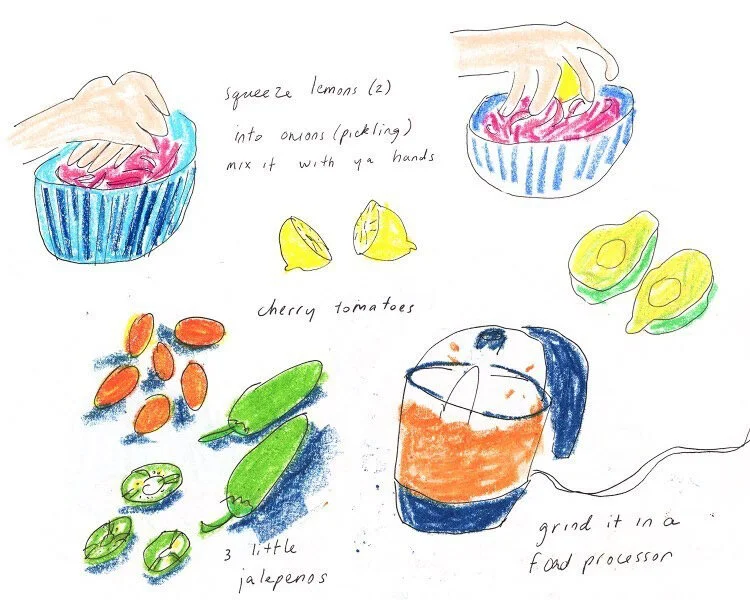 squeeze lemons (2)
into onions (pickling)
mix it with ya hands
cherry tomatoes
3 little
jalepenos
grind it in a
food processor